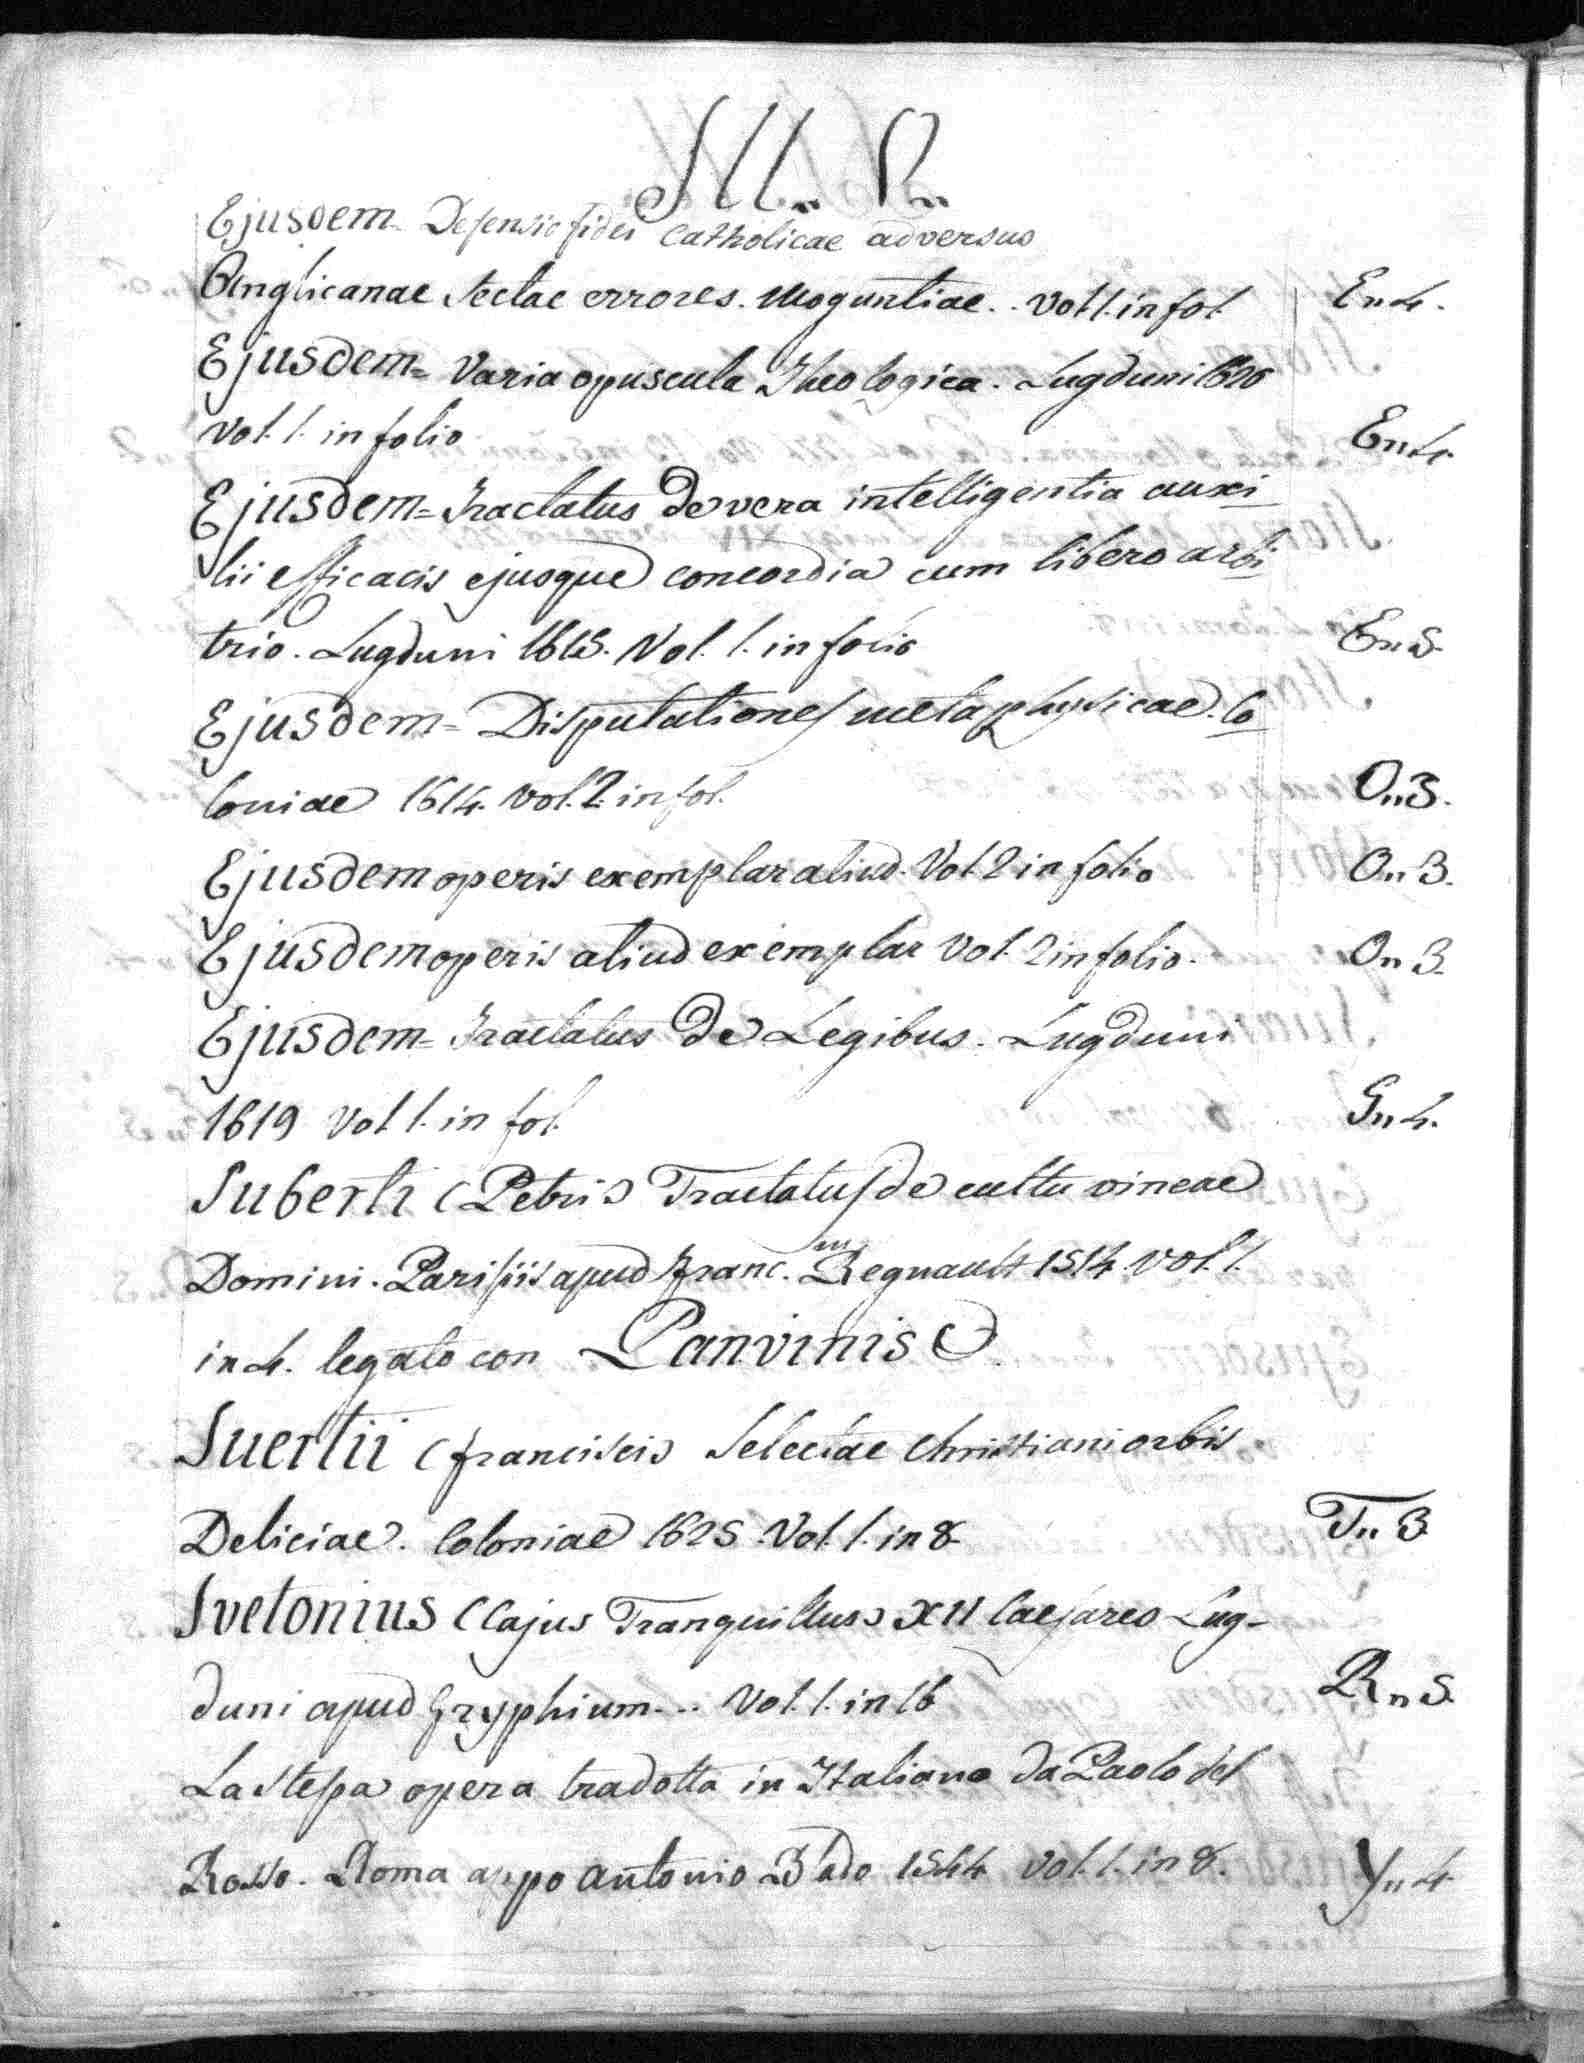 Ejusdem = Defensio fidei Catholicae adversus
Anglicanae Sectae errores. Moguntiae .. vol 1. in fol. E„4.
Ejusdem = Varia opuscula Theologica. Lugduni 1620
vol. 1. in folio E„4.
Ejusdem = Tractatus de vera intelligentia auxi
lii efficacis ejusque concordia cum libero arbi
trio. Lugduni 1655. Vol. 1. in folio E„5.
Ejusdem = Disputationes metaphysicae. Co
loniae 1614. vol. 2. in fol. O„3.
Ejusdem operis exemplar aliud. Vol 2 in folio O„3.
Ejusdem operis aliud exemplar Vol. 2 in folio. O„3.
Ejusdem = Tractatus de Legibus. Lugduni
1619 vol 1. in fol. G„4.
Suberti (Petri) Tractatus de cultu vineae
Domini. Parisiis apud Franc. Regnault 1514 vol. 1.
in 4. legato con Panvinis
Suertii (Francisci) Selectae Christiani orbis
Deliciae. Coloniae 1625. Vol. 1. in 8. T„3
Svetonius (Cajus Tranquillus) XII Caesares Lug-
duni apud Gryphium... Vol. 1. in 16 R„5.
La stessa opera tradotta in Italiano da Paolo del
Rosso. Roma appo Antonio Blado 1544 vol. 1. in 8. Y„4